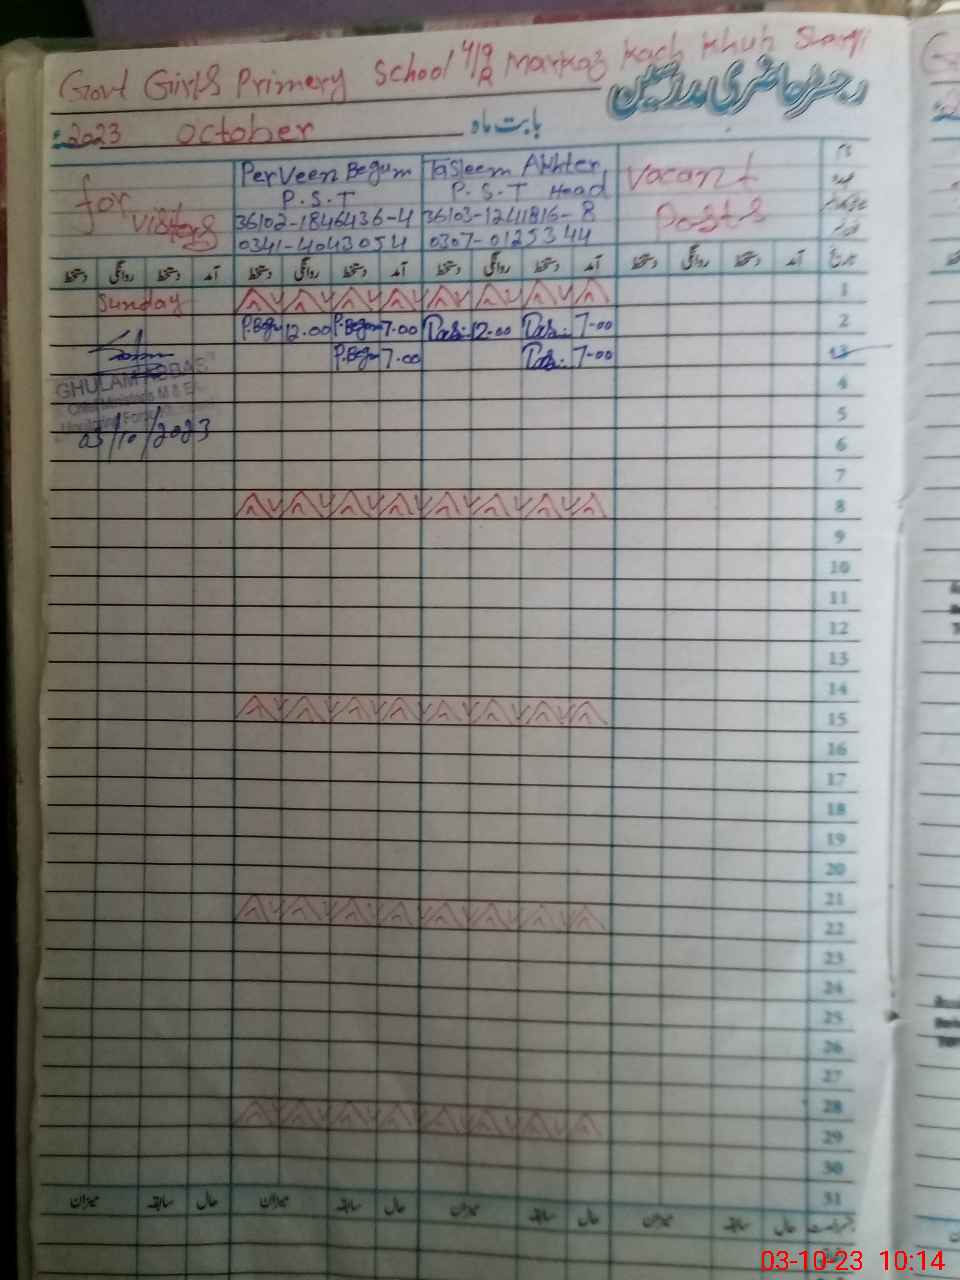 Govt Girls Primery School 4/9R Markaz Kach Khuh
رجسٹر حاضری مدرسین
2023 October بابت ماہ
for visitors
PerVeen Begum
P.S.T
36102-1846436-4
0341-4043054
Tasleem Akhter
P.S.T Head
36103-1241816-8
0307-0125344
Vacant Posts
نام
عہدہ
تاریخ
آمد دستخط روانگی دستخط آمد دستخط روانگی دستخط آمد دستخط روانگی دستخط آمد دستخط روانگی دستخط
Sunday 1
P.Begum 12.00 P.Begum 7.00 12.00 7-00 2
P.Begum 7.00 7-00 3
GHULAM ABBAS
Chief Minister's M & E
Monitoring Force
03/10/2023
4
5
6
7
8
9
10
11
12
13
14
15
16
17
18
19
20
21
22
23
24
25
26
27
28
29
30
31
حال سابقہ میزان حال سابقہ میزان حال سابقہ میزان حال سابقہ میزان
03-10-23 10:14